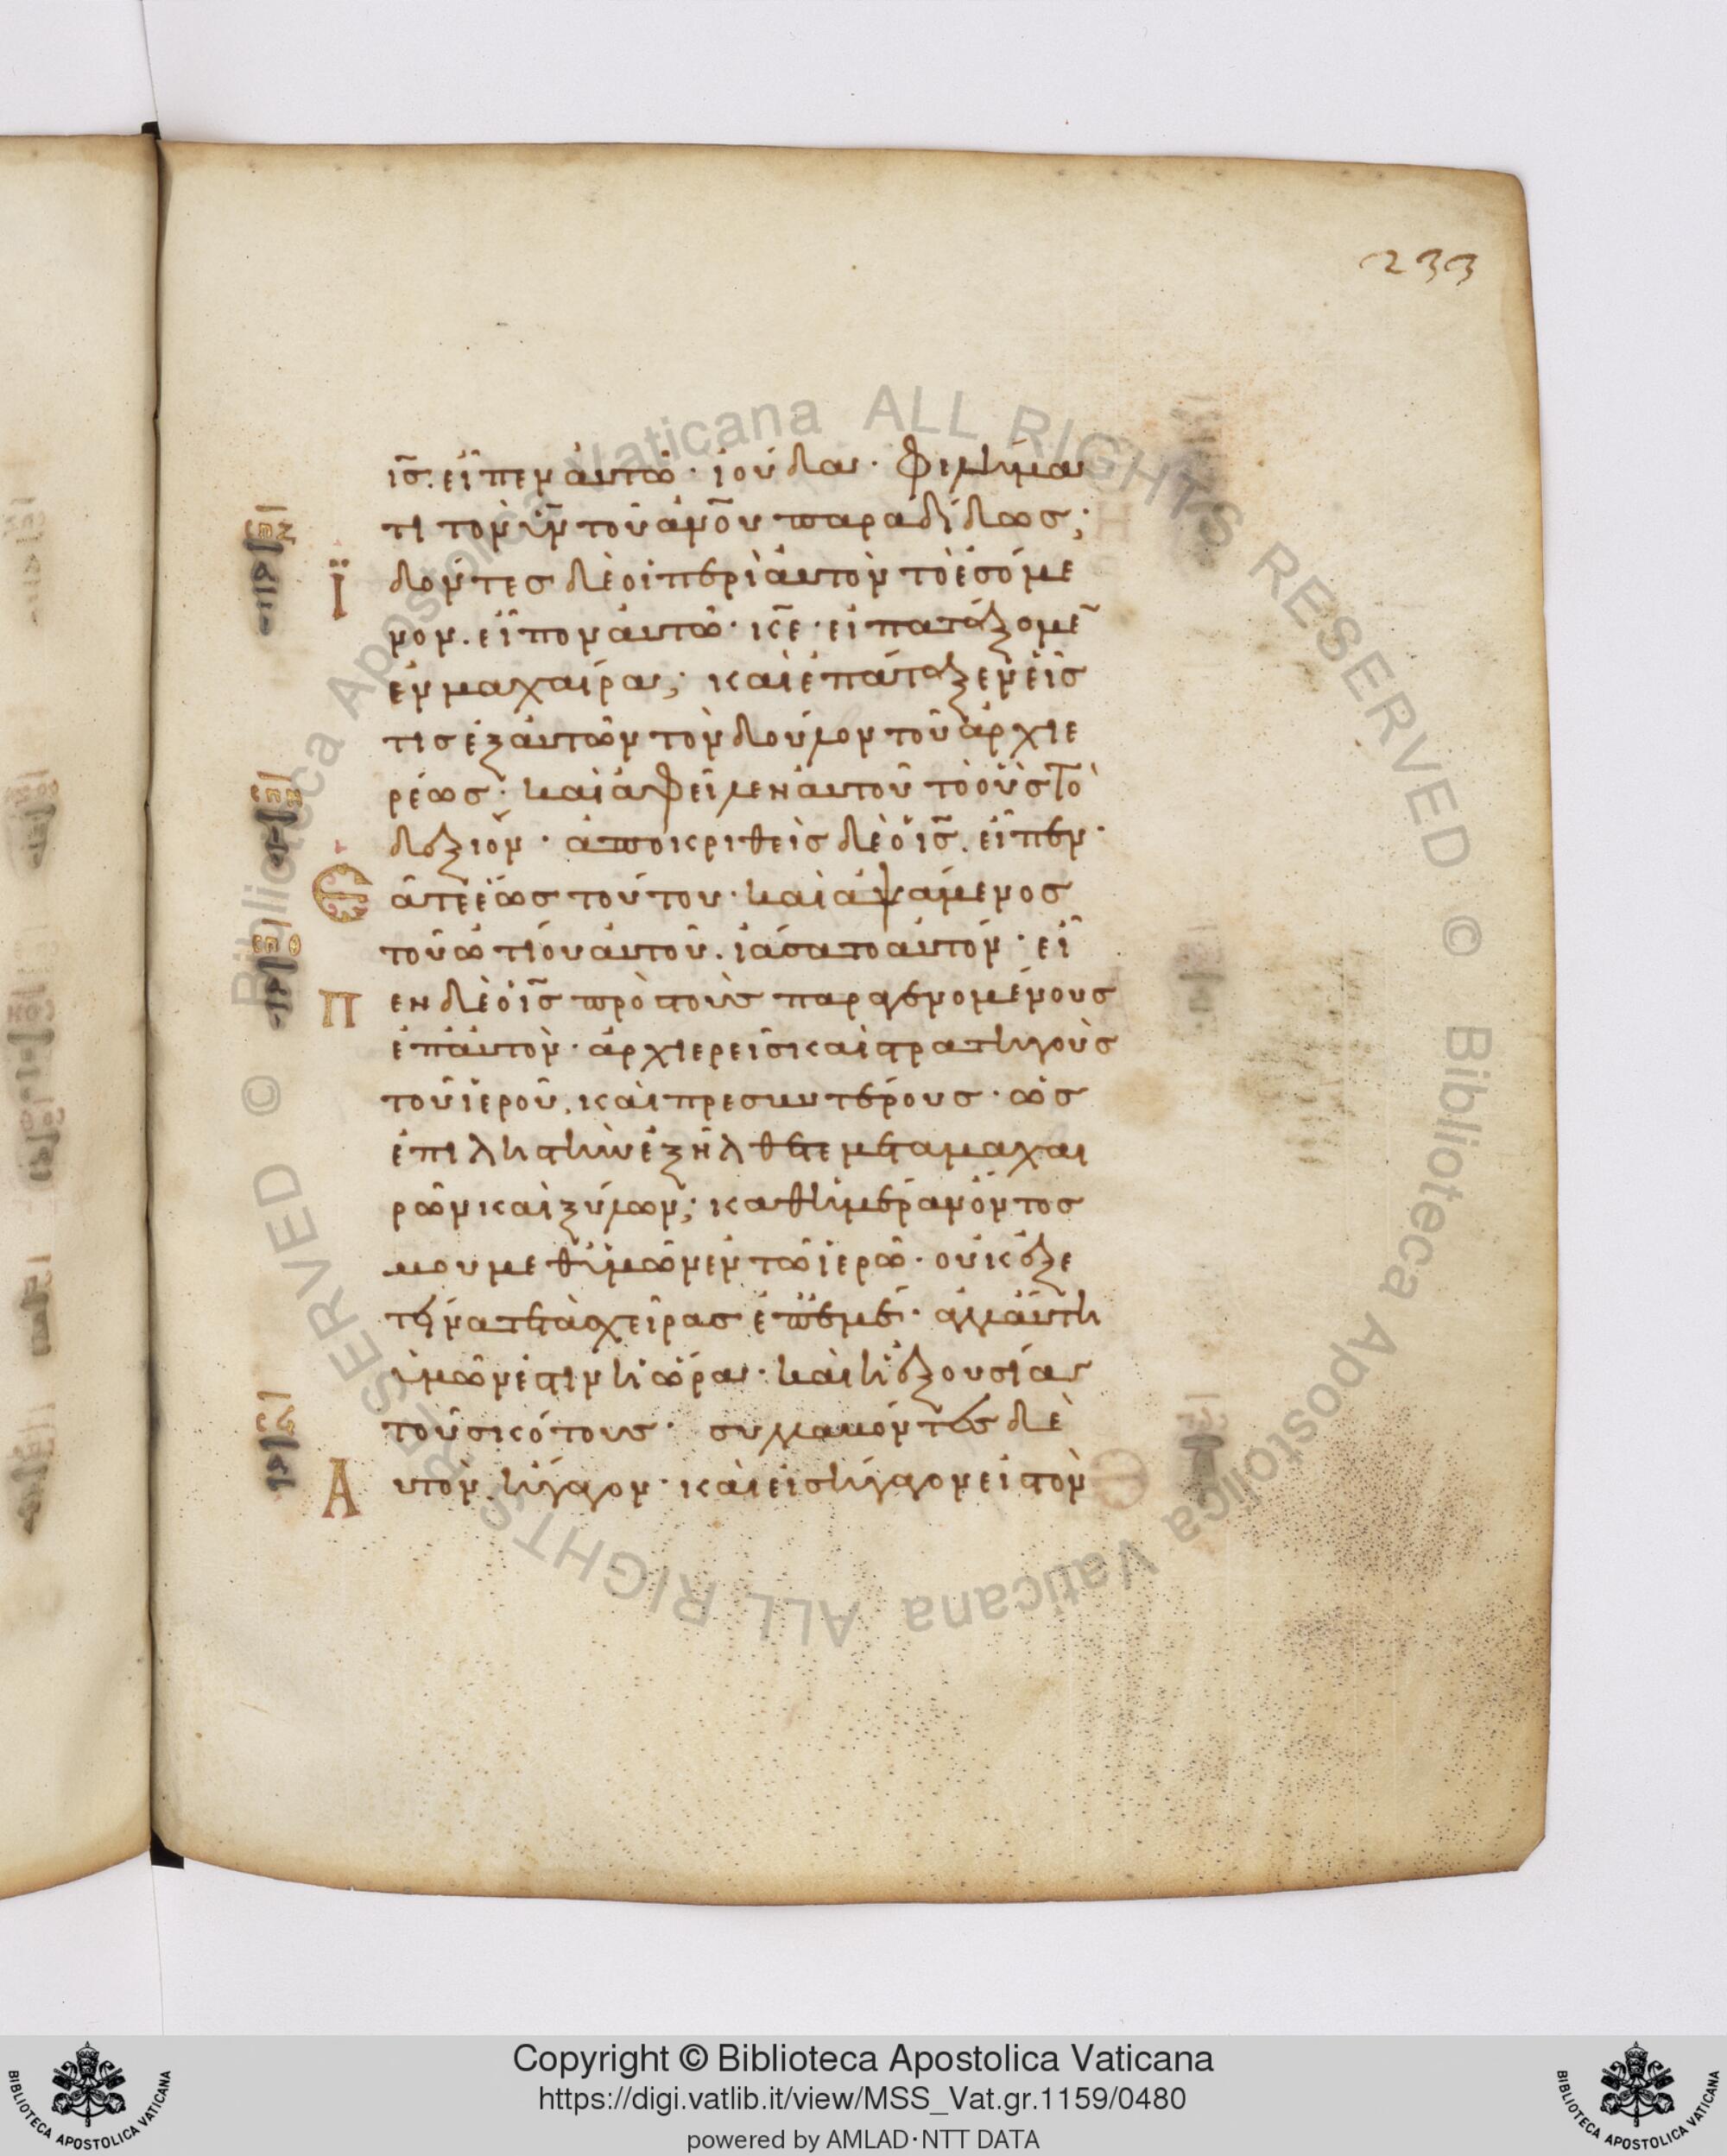 233
ις̅. εἶπεν αὐτῶ· ἰούδα· φιλήμα
τι τὸν υ̅ν̅ τοῦ ἀν̅ου παραδίδως;
Ϊδόντες δὲ οἱ περὶ αὐτὸν τὸ ἐσόμε
νον. εἶπον αὐτῶ· κ̅ε̅· εἰ πατάξομε̅
ἐν μαχαίρα; καὶ ἐπάταξεν εἷς
τις ἐξ αὐτῶν τὸν δοῦλον τοῦ ἀρχιε
ρέως· καὶ ἀφεῖλεν αὐτοῦ τὸ οὖς τὸ
δεξιόν· ἀποκριθεὶς δὲ ὁ ι̅ς̅. εἶπεν·
Ἐᾶτε ἕως τούτου· καὶ ἁψάμενος
τοῦ ὠτίου αὐτοῦ. ἰάσατο αὐτόν· εἶ
Πεν δὲ ὁ ι̅ς̅ πρὸς τοὺς παραγενομένους
ἐπ' αὐτὸν· ἀρχιερεῖς καὶ στρατηγοὺς
τοῦ ἱεροῦ. καὶ πρεσβυτέρους· ὡς
ἐπὶ ληστὴν ἐξήλθετε μετὰ μαχαι
ρῶν καὶ ξύλων; καθ' ἡμέραν ὄντος
μου μεθ' ὑμῶν ἐν τῶ ἱερῶ· οὐκ ἐξε
τείνατε τὰς χεῖρας ἐπ' ἐμέ· ἀλλ' αὕτη
ὑμῶν ἐστιν ἡ ὥρα· καὶ ἡ ἐξουσία
τοῦ σκότους· συλλαβόντες δὲ
Αὐτὸν. ἤγαγον· καὶ εἰσήγαγον εἰς τὸν
Copyright © Biblioteca Apostolica Vaticana
https://digi.vatlib.it/view/MSS_Vat.gr.1159/0480
powered by AMLAD·NTT DATA